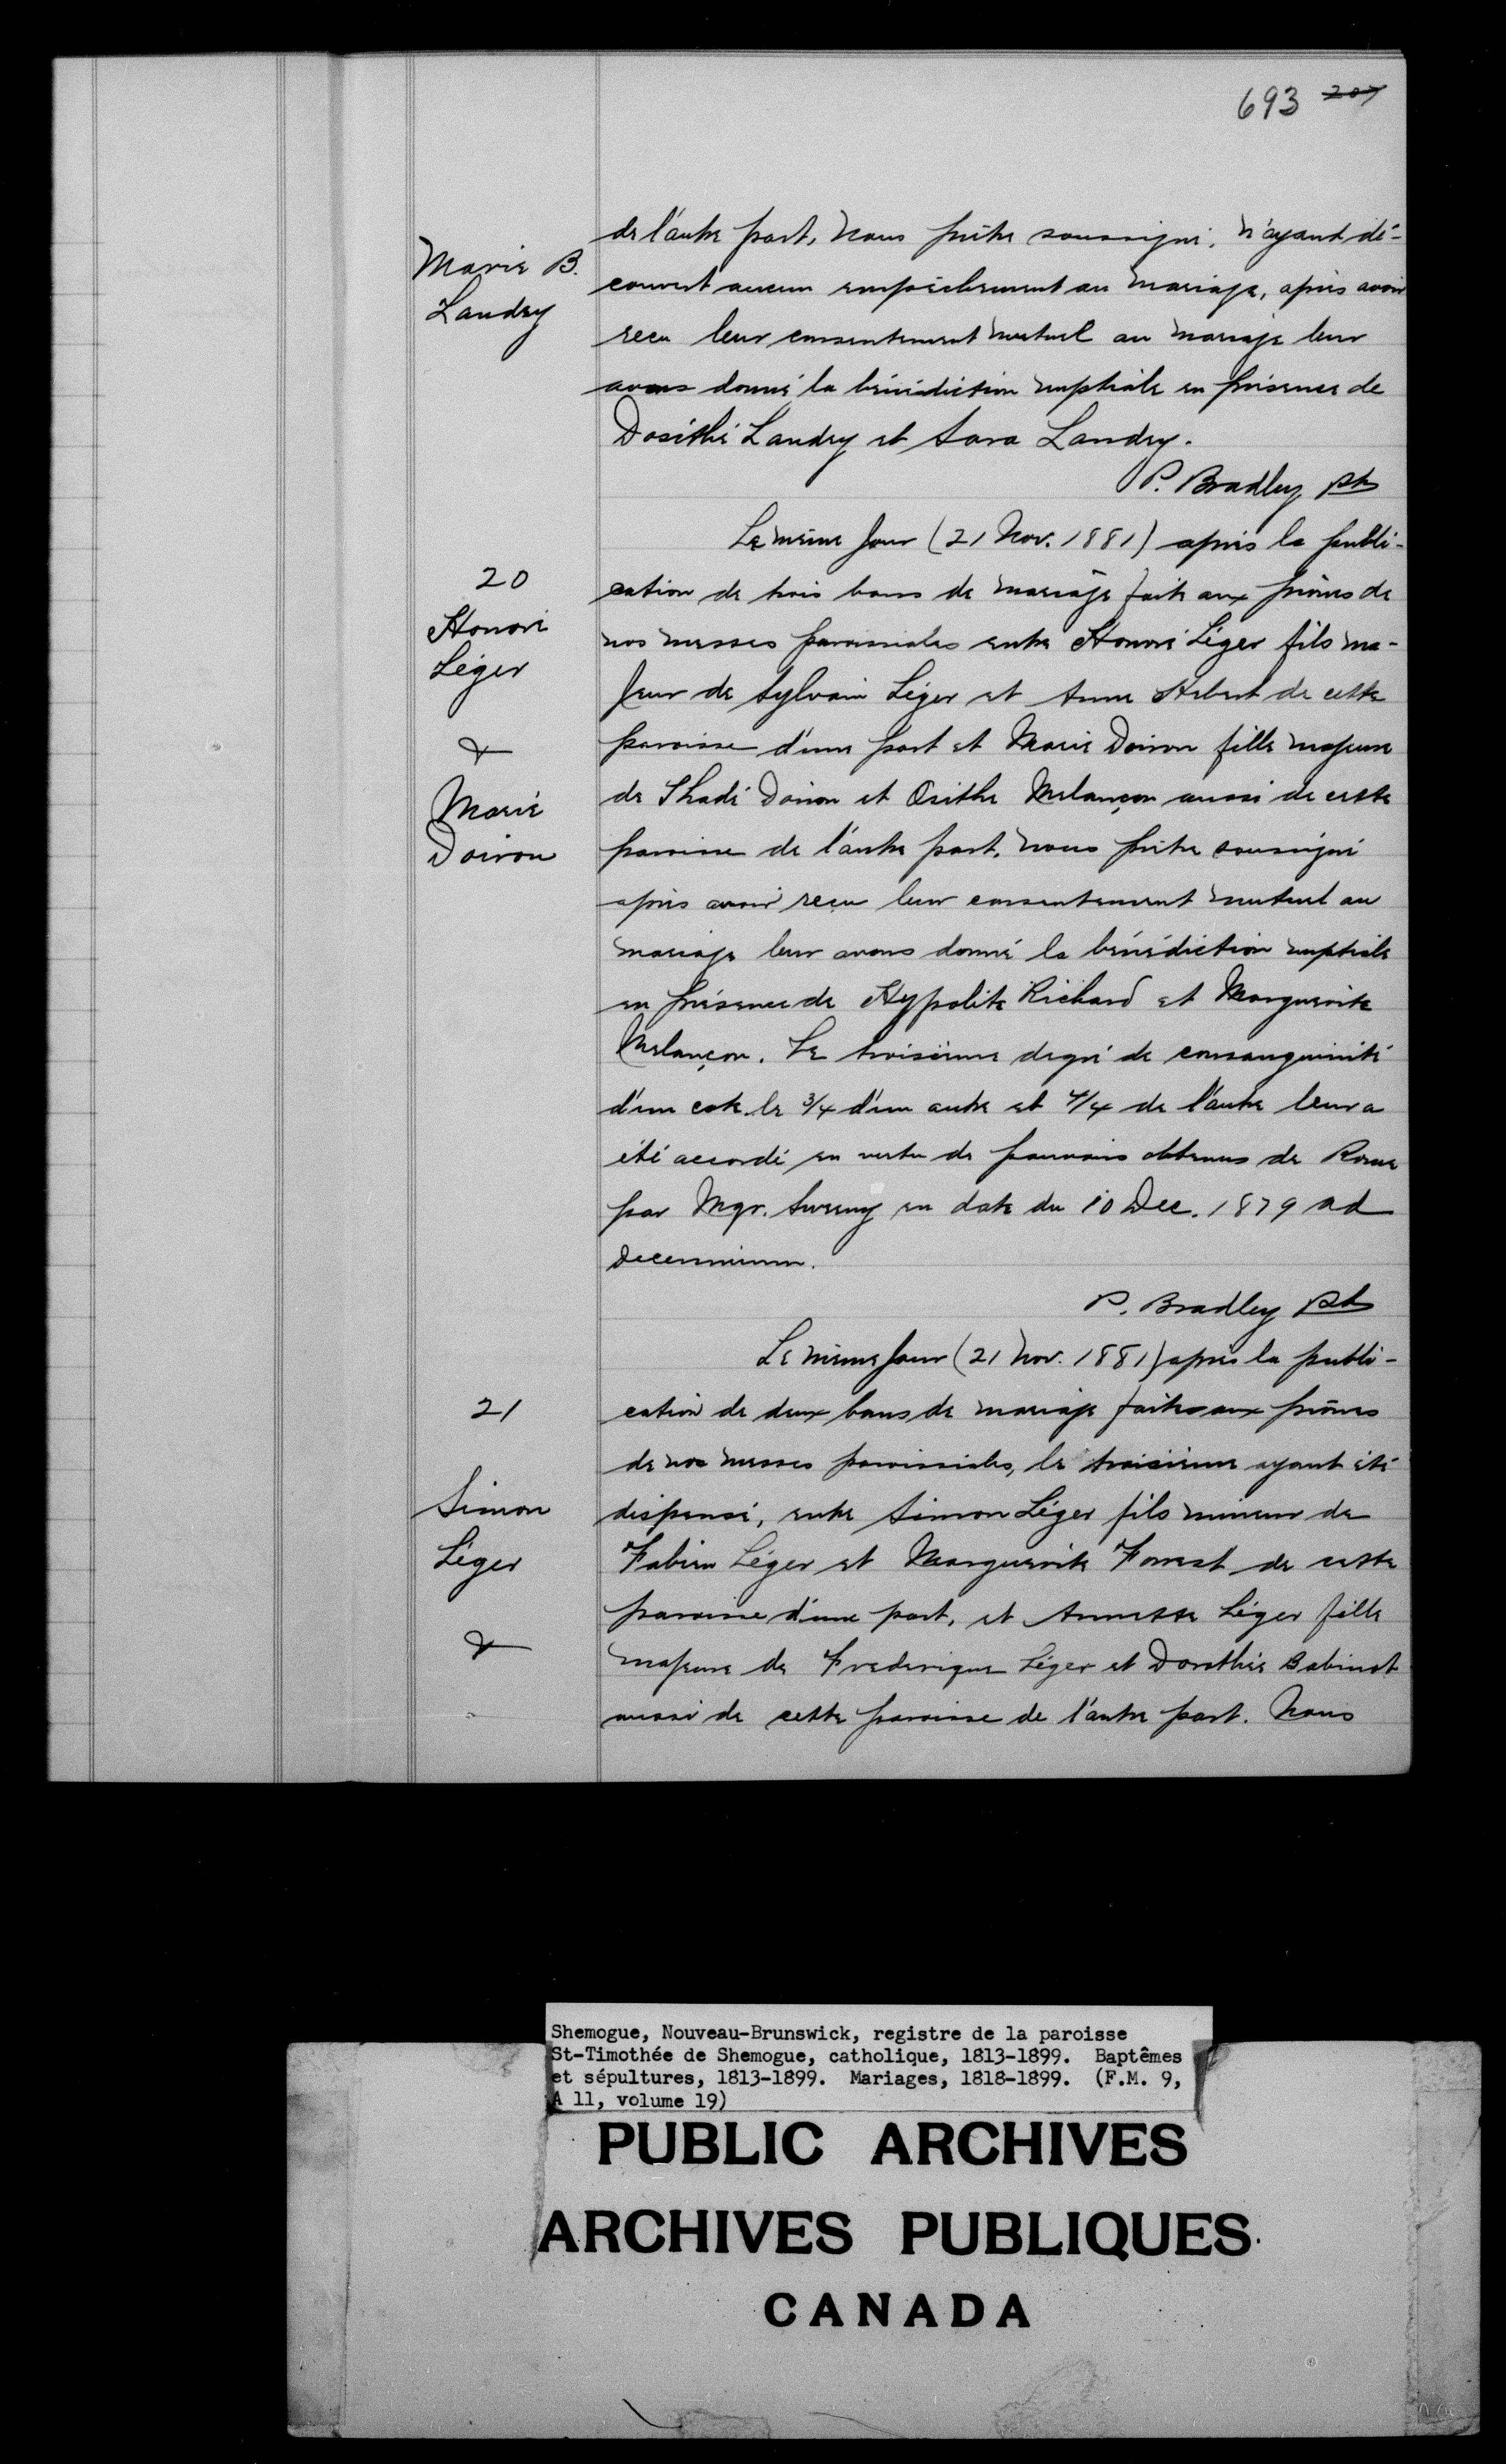 693 207
Marie B.
Landry
de l'autre part, Nous prêtre soussigné, n'ayant dé-
couvert aucun empêchement au mariage, après avoir
recu leur consentement mutuel au mariage leur
avons donné la bénédiction nuptiale en présence de
Dosithé Landry et Sara Landry.
P. Bradley Pt
20
Honoré
Léger
&
Marie
Doiron
Le même Jour (21 Nov. 1881) après la publi-
cation de trois bans de mariage faite aux prônes de
nos messes paroissiales entre Honoré Léger fils ma-
jeur de Sylvain Léger et Anne Hebert de cette
paroisse d'une part et Marie Doiron fille majeure
de Thadé Doiron et Osithe Melançon aussi de cette
paroisse de l'autre part, nous prêtre soussigné
après avoir reçu leur consentement mutuel au
mariage leur avons donné la bénédiction nuptiale
en présence de Hypolite Richard et Marguerite
Melançon. Le troisième degré de consanguinité
d'un cote le 3/4 d'un autre et 4/4 de l'autre leur a
été accordé en vertu de pouvoirs obtenus de Rome
par Mgr. Sweeny en date du 10 Dec. 1879 ad
decennium.
P. Bradley Pt
21
Simon
Léger
&
Le même Jour (21 Nov. 1881) après la publi-
cation de deux bans de mariage faites aux prônes
de nos messes paroissiales, le troisième ayant été
dispensé, entre Simon Léger fils mineur de
Fabien Léger et Marguerite Forrest de cette
paroisse d'une part, et Annesse Léger fille
majeure de Frederique Léger et Dorothée Babinot
aussi de cette paroisse de l'autre part. Nous
Shemogue, Nouveau-Brunswick, registre de la paroisse
St-Timothée de Shemogue, catholique, 1813-1899. Baptêmes
et sépultures, 1813-1899. Mariages, 1818-1899. (F.M. 9,
A 11, volume 19)
PUBLIC ARCHIVES
ARCHIVES PUBLIQUES
CANADA